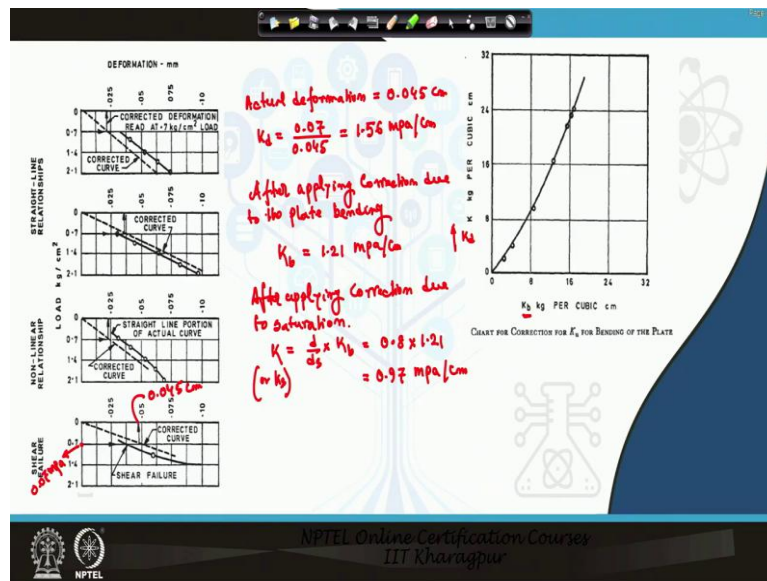 Page
DEFORMATION - mm
·025
·05
075
·10
0
0·7
1·4
2·1
CORRECTED DEFORMATION
READ AT·7 kg/cm² LOAD
CORRECTED
CURVE
STRAIGHT-LINE
RELATIONSHIPS
·025
·05
·075
·10
0
0·7
1·4
2·1
CORRECTED
CURVE
LOAD kg / cm²
·025
·05
·075
·10
0
0·7
1·4
2·1
STRAIGHT LINE PORTION
OF ACTUAL CURVE
CORRECTED
CURVE
NON-LINEAR
RELATIONSHIP
0.045 cm
·025
·05
·075
·10
0
0·7
1·4
2·1
CORRECTED
CURVE
SHEAR FAILURE
SHEAR
FAILURE
0.07 mpa
Actual deformation = 0.045 cm
Kd = 0.07 / 0.045 = 1.56 mpa/cm
After applying correction due
to the plate bending
Kb = 1.21 mpa/cm
After applying correction due
to saturation.
K = d/ds × Kb = 0.8 × 1.21
(or ks)
= 0.97 mpa/cm
32
24
16
8
0
K kg PER CUBIC cm
Kd
0
8
16
24
32
Kb kg PER CUBIC cm
CHART FOR CORRECTION FOR K'u FOR BENDING OF THE PLATE
NPTEL
NPTEL Online Certification Courses
IIT Kharagpur